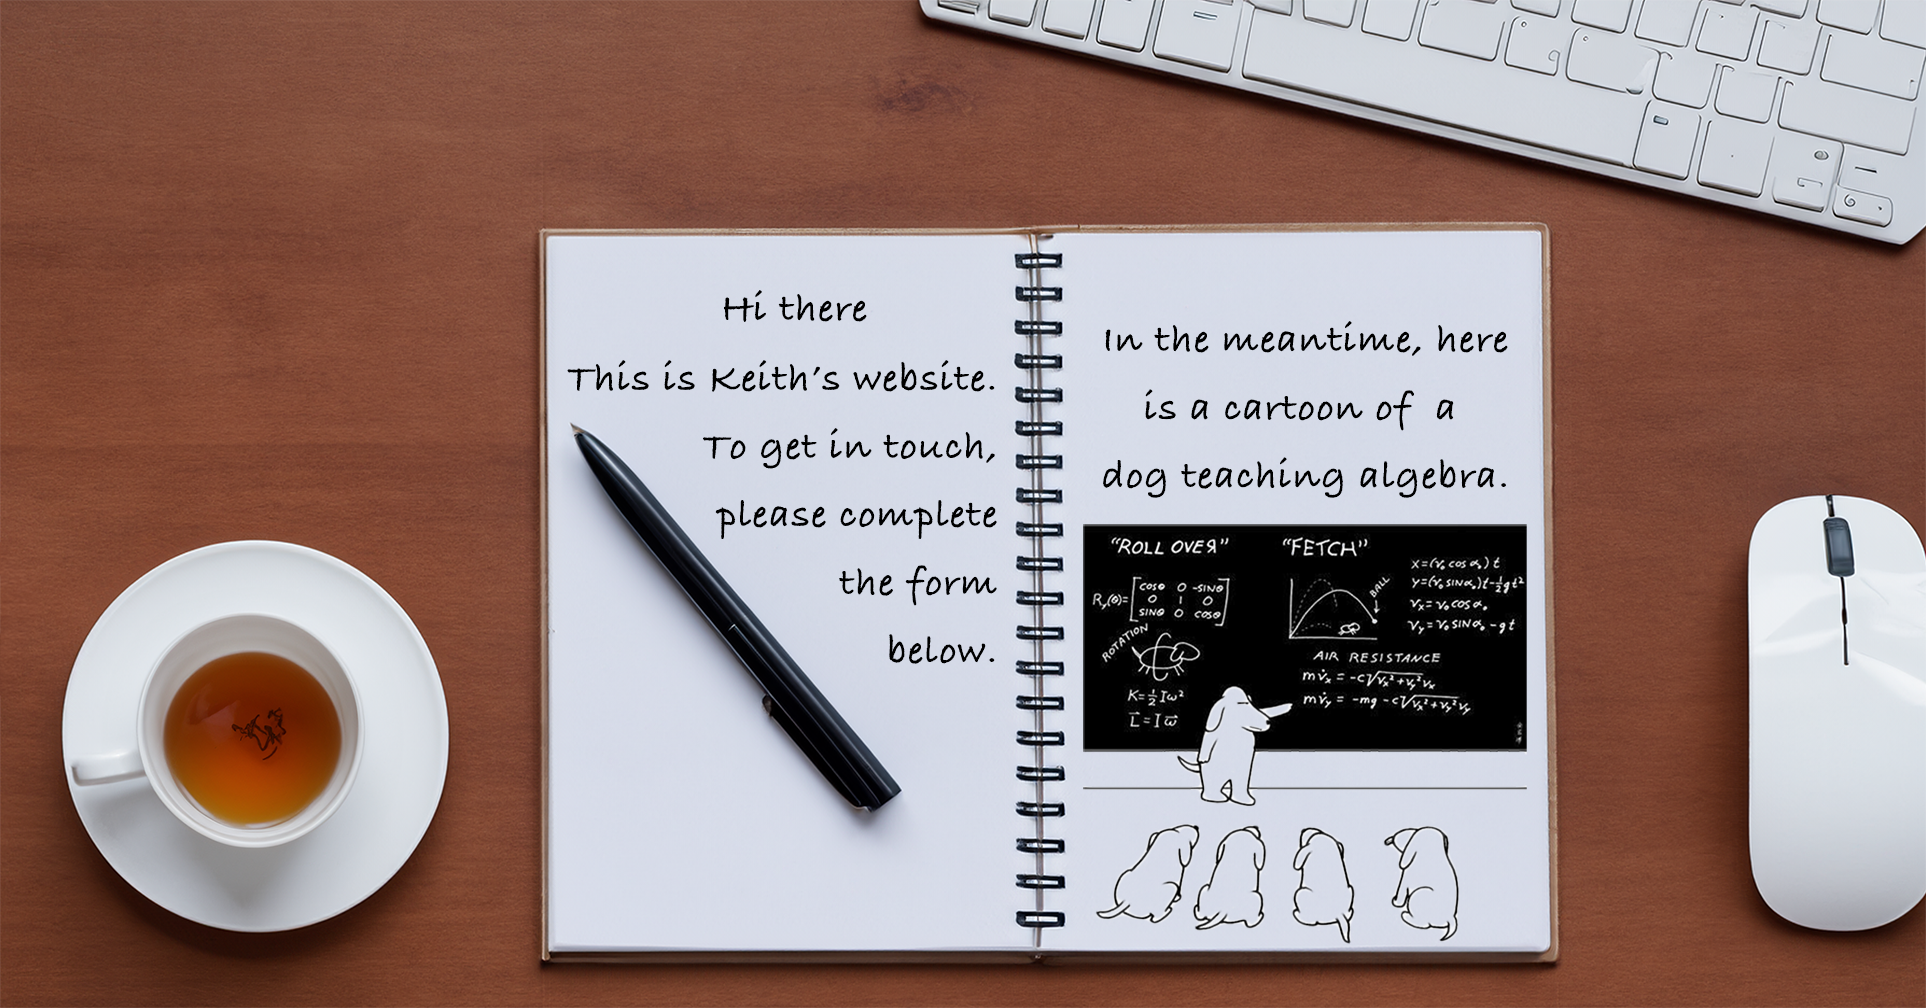 Hi there
This is Keith's website.
To get in touch,
please complete
the form
below.
In the meantime, here
is a cartoon of a
dog teaching algebra.
"ROLL OVER"
R_y(θ)= [cosθ 0 -sinθ
0 1 0
sinθ 0 cosθ]
ROTATION
K=½Iω²
L⃗=Iω⃗
"FETCH"
BALL
x=(v₀cosα₀)t
y=(v₀sinα₀)t-½gt²
vₓ=v₀cosα₀
v_y=v₀sinα₀-gt
AIR RESISTANCE
mv̇ₓ=-c√(vₓ²+v_y²)vₓ
mv̇_y=-mg-c√(vₓ²+v_y²)v_y